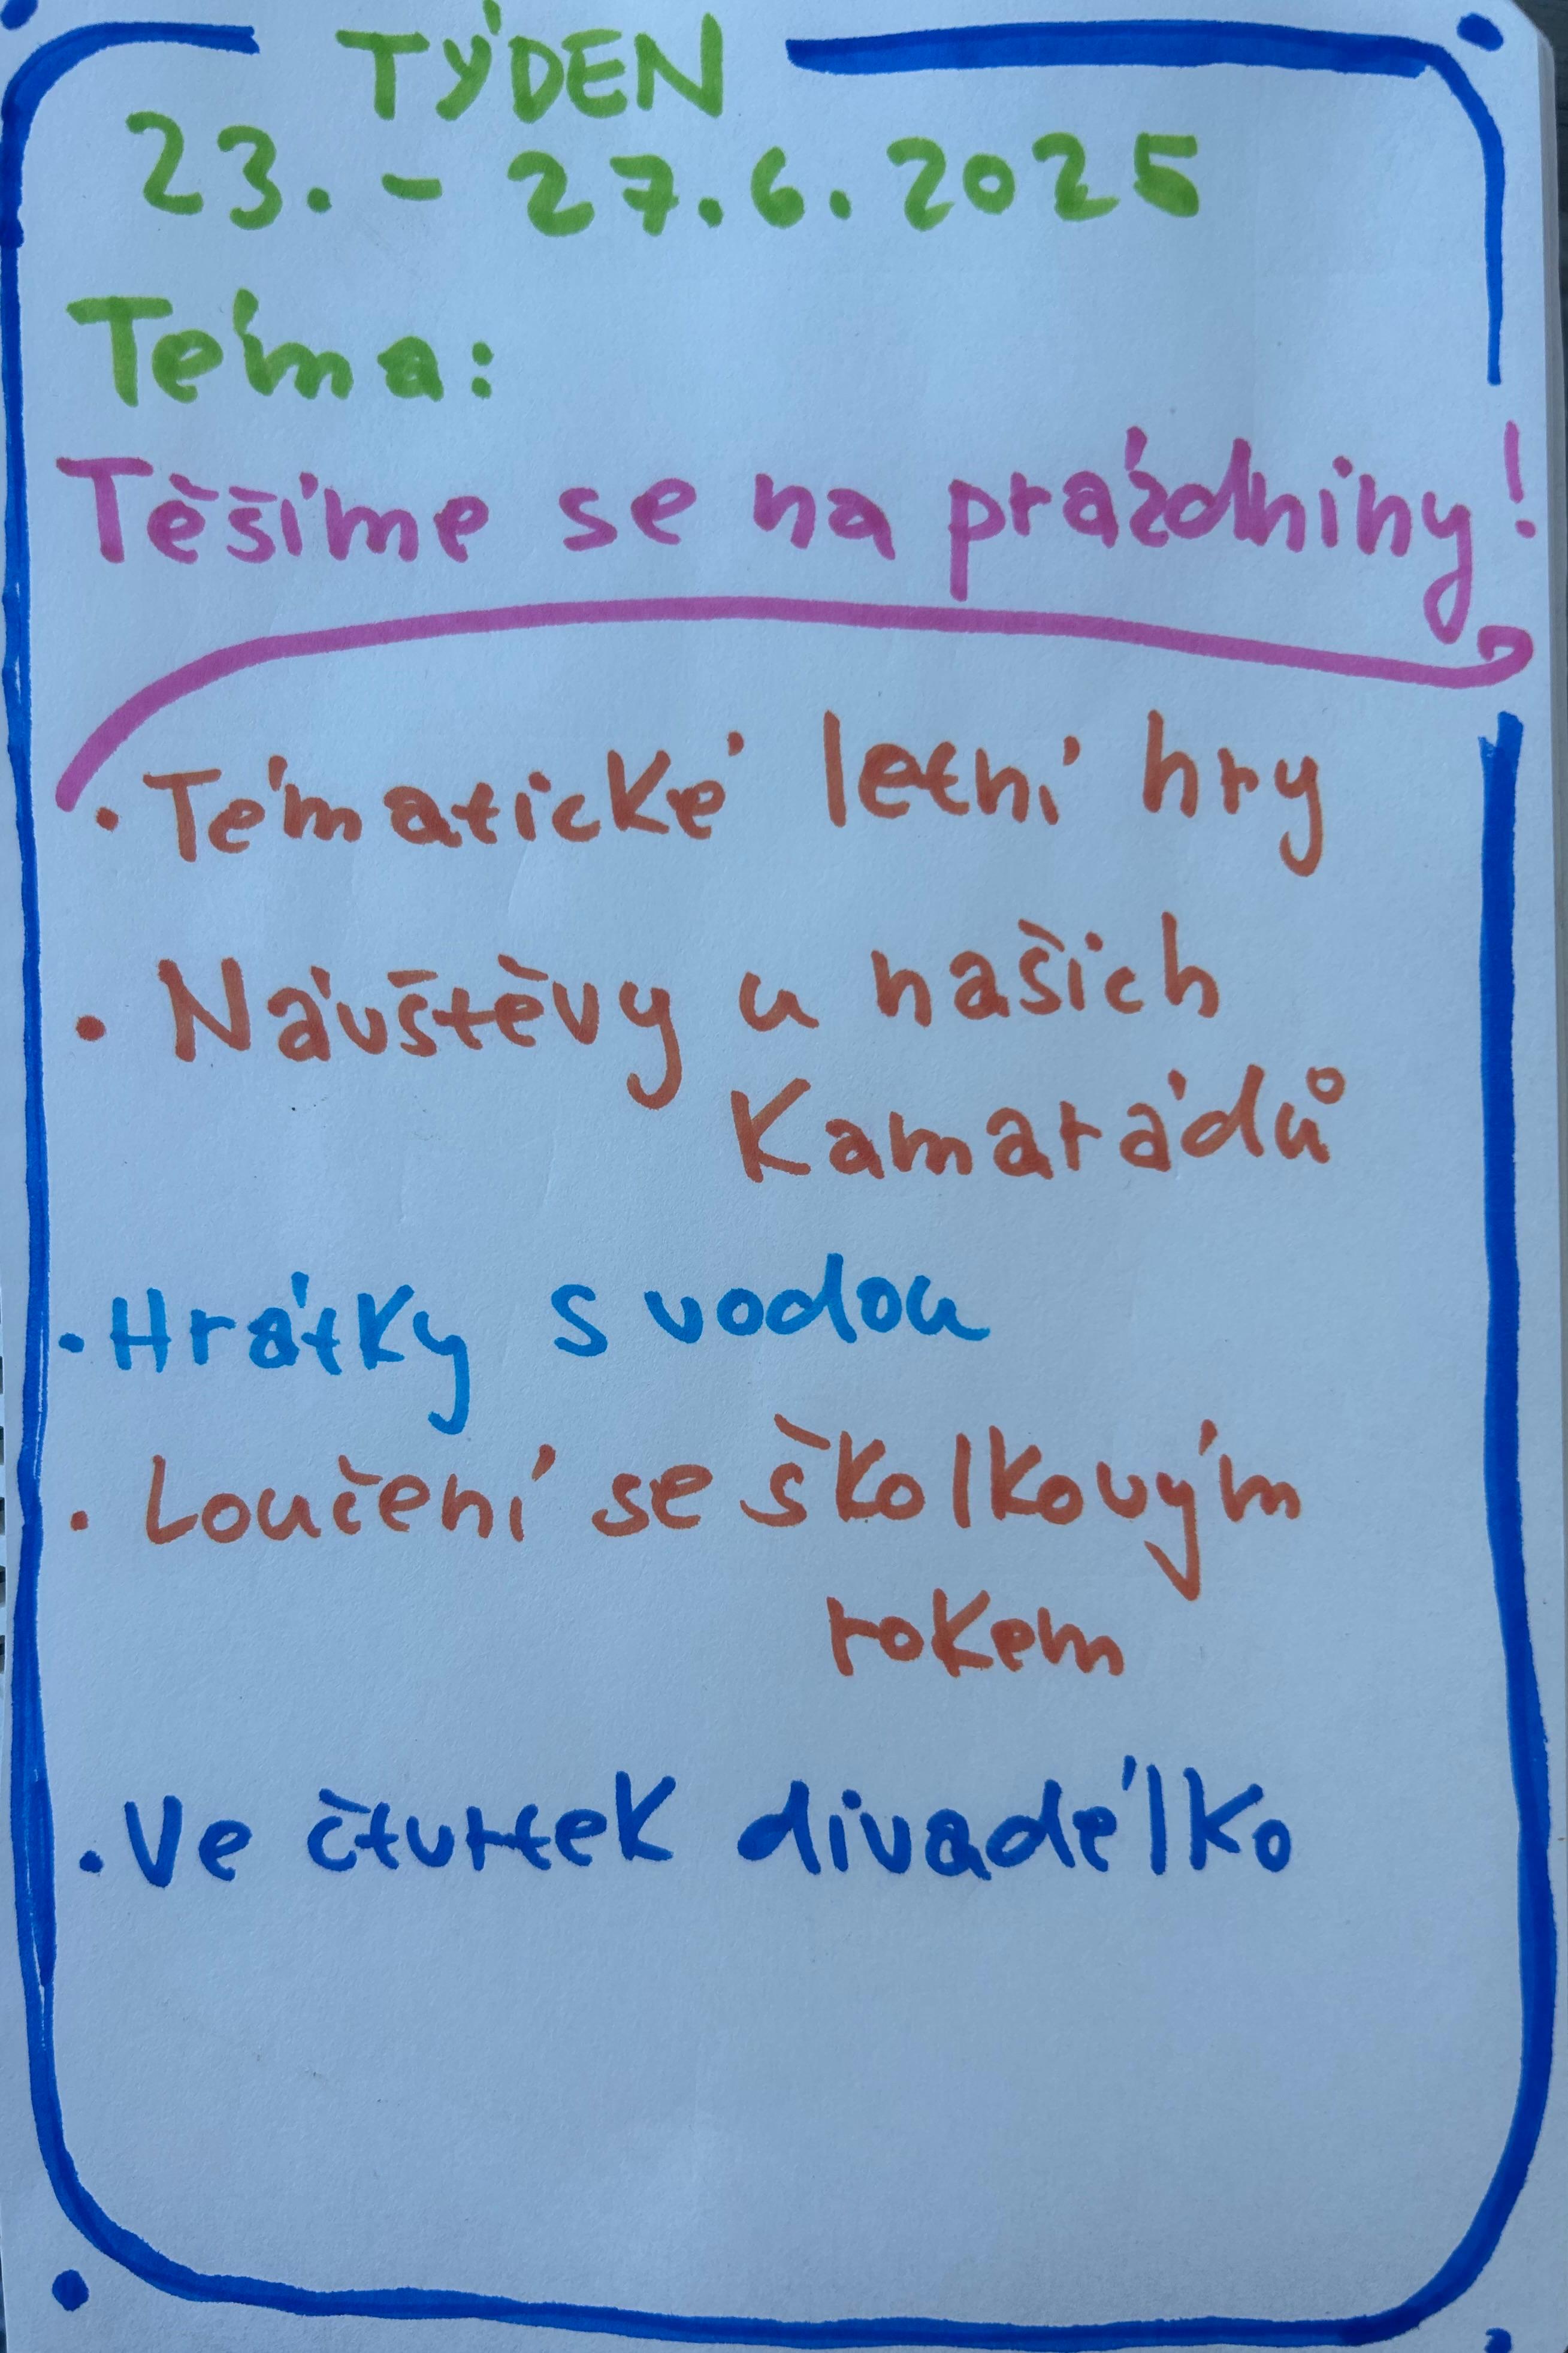 TÝDEN
23. - 27.6.2025
Téma:
Těšíme se na prázdniny!
• Tématické letní hry
• Návštěvy u našich
Kamarádů
• Hrátky s vodou
• Loučení se školkovým
rokem
• Ve čtvrtek divadélko